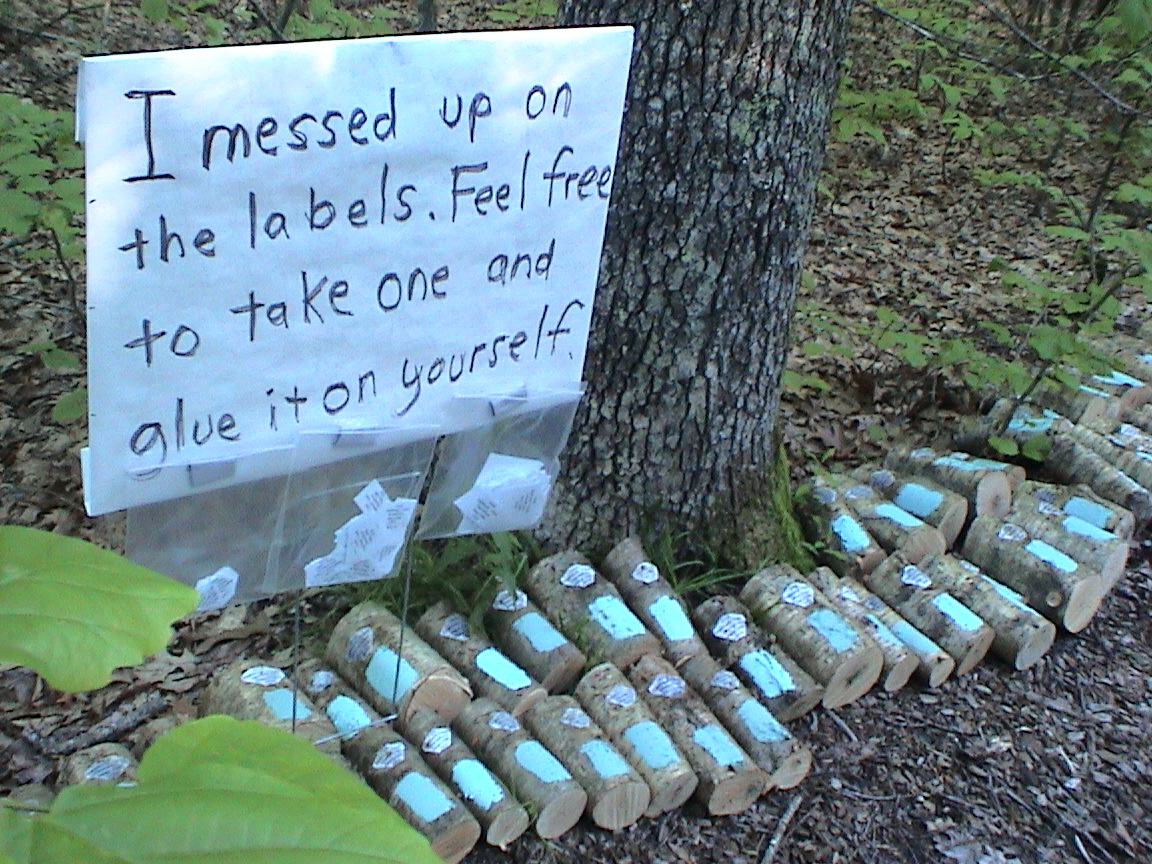 I messed up on
the labels. Feel free
to take one and
glue it on yourself.